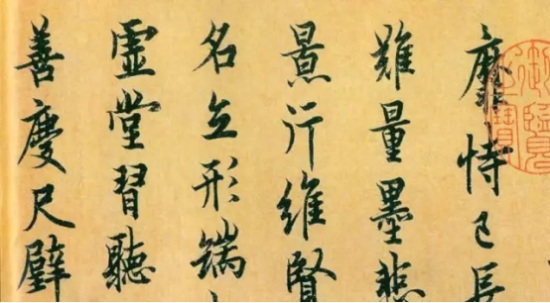 靡恃己長
難量墨悲
景行維賢
名立形端
虛堂習聽
善慶尺璧